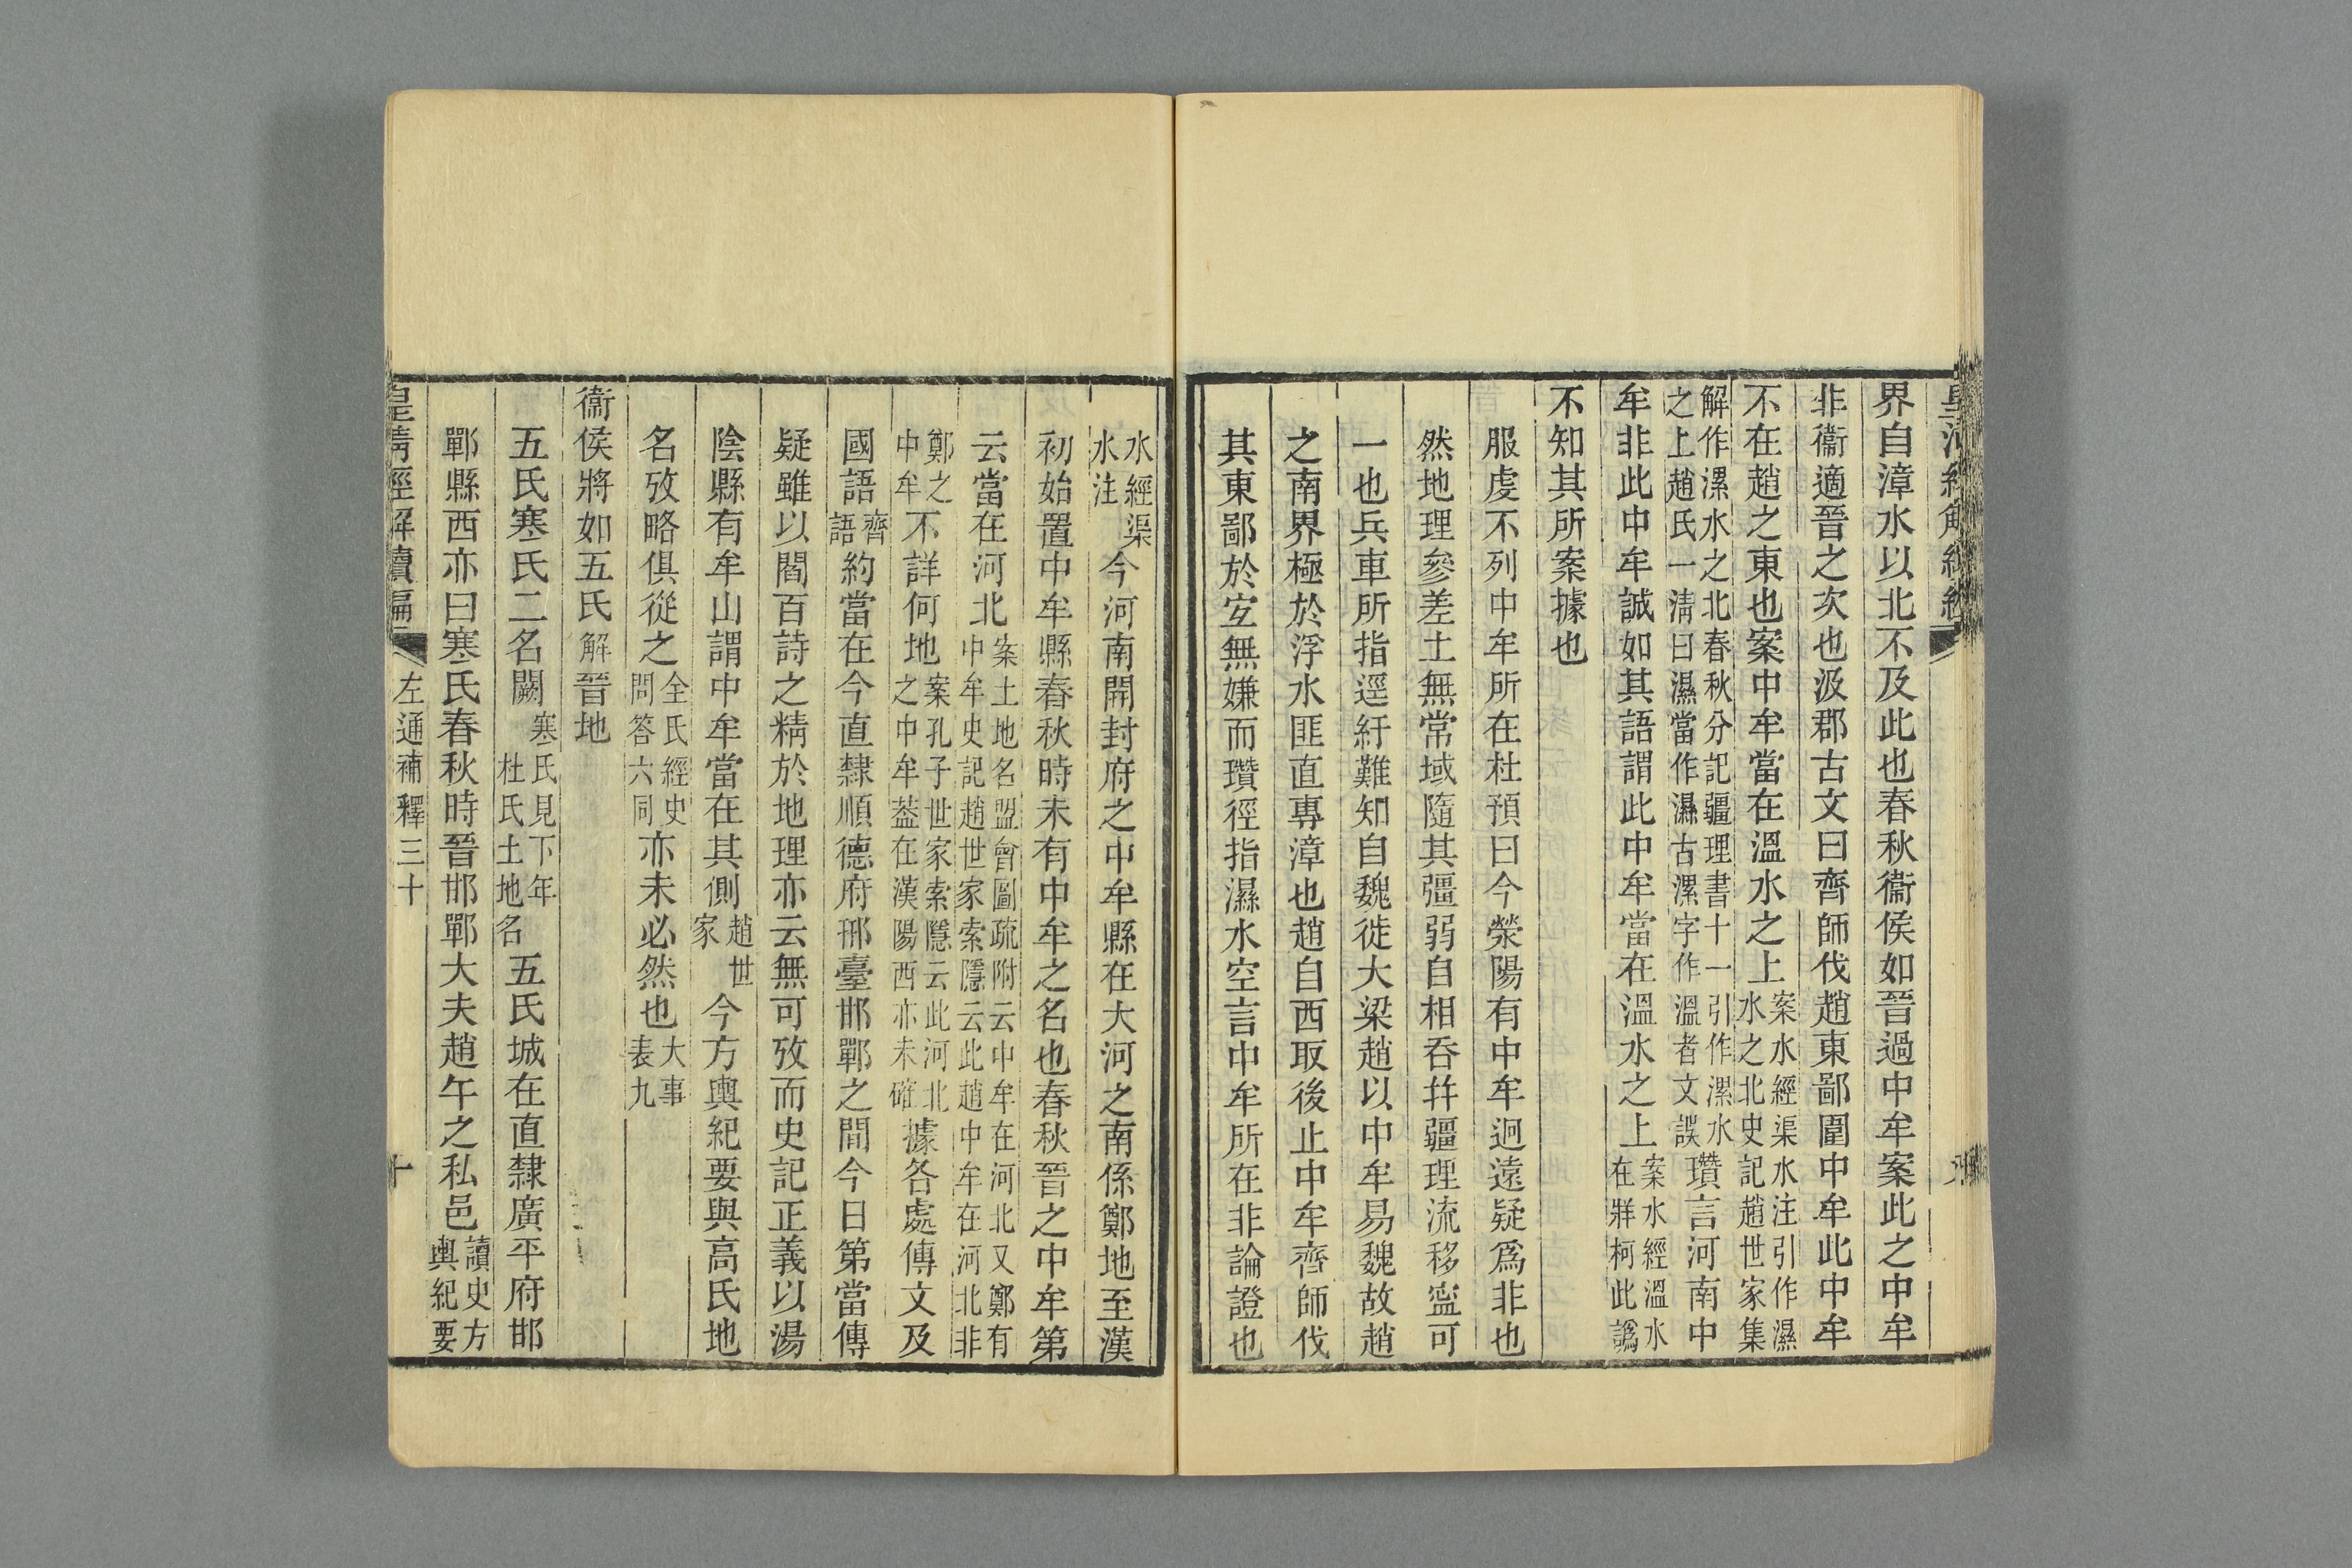 界自漳水以北不及此也春秋衞侯如晉過中牟案此之中牟
非衞適晉之次也汲郡古文曰齊師伐趙東鄙圍中牟此中牟
不在趙之東也案中牟當在溫水之上案水經渠水注引作濕水之北史記趙世家集
解作漯水之北春秋分記疆理書十一引作漯水之上趙氏一清曰濕當作濕古漯字作溫者文誤瓚言河南中
牟非此中牟誠如其語謂此中牟當在溫水之上案水經溫水在牂柯此譌
不知其所案據也
服虔不列中牟所在杜預曰今滎陽有中牟迥遠疑爲非也
然地理參差土無常域隨其彊弱自相吞幷疆理流移寍可
一也兵車所指逕紆難知自魏徙大梁趙以中牟易魏故趙
之南界極於浮水匪直專漳也趙自西取後止中牟齊師伐
其東鄙於宐無嫌而瓚徑指濕水空言中牟所在非論證也
水經渠水注今河南開封府之中牟縣在大河之南係鄭地至漢
初始置中牟縣春秋時未有中牟之名也春秋晉之中牟第
云當在河北案土地名盟會圖疏附云中牟在河北又鄭有中牟史記趙世家索隱云此趙中牟在河北非
鄭之中牟不詳何地案孔子世家索隱云此河北之中牟葢在漢陽西亦未確據各處傳文及
國語齊語約當在今直隸順德府邢臺邯鄲之間今日第當傳
疑雖以閻百詩之精於地理亦云無可攷而史記正義以湯
陰縣有牟山謂中牟當在其側趙世家今方輿紀要與高氏地
名攷略俱從之全氏經史問答六同亦未必然也大事表九
衞侯將如五氏解晉地
五氏寒氏二名闕寒氏見下年杜氏土地名五氏城在直隸廣平府邯
鄲縣西亦曰寒氏春秋時晉邯鄲大夫趙午之私邑讀史方輿紀要
皇清經解續編
左通補釋三十
十